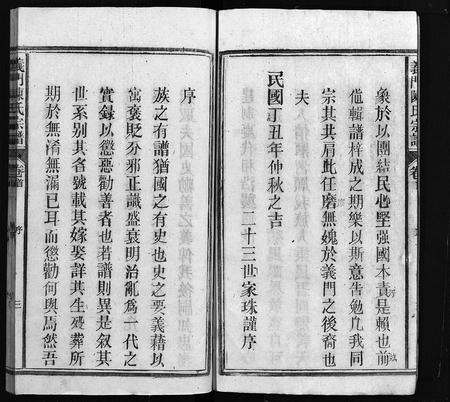 義門陳氏宗譜
卷首
象於以團結民心堅強國本責是賴也前
他輯譜梓成之期樂以斯意告勉凡我同
宗其共肩此任磨無媿於義門之後裔也
夫
民國丁丑年仲秋之吉
二十三世家珠謹序
序
族之有譜猶國之有史也史之要義藉以
寓褒貶分邪正識盛衰明治亂為一代之
實錄以懲惡勸善者也若譜則異是叙其
世系别其名號載其嫁娶詳其生殁葬所
期於無淆無漏已耳而懲勸何與焉然吾
義門陳氏宗譜
卷首
序
三